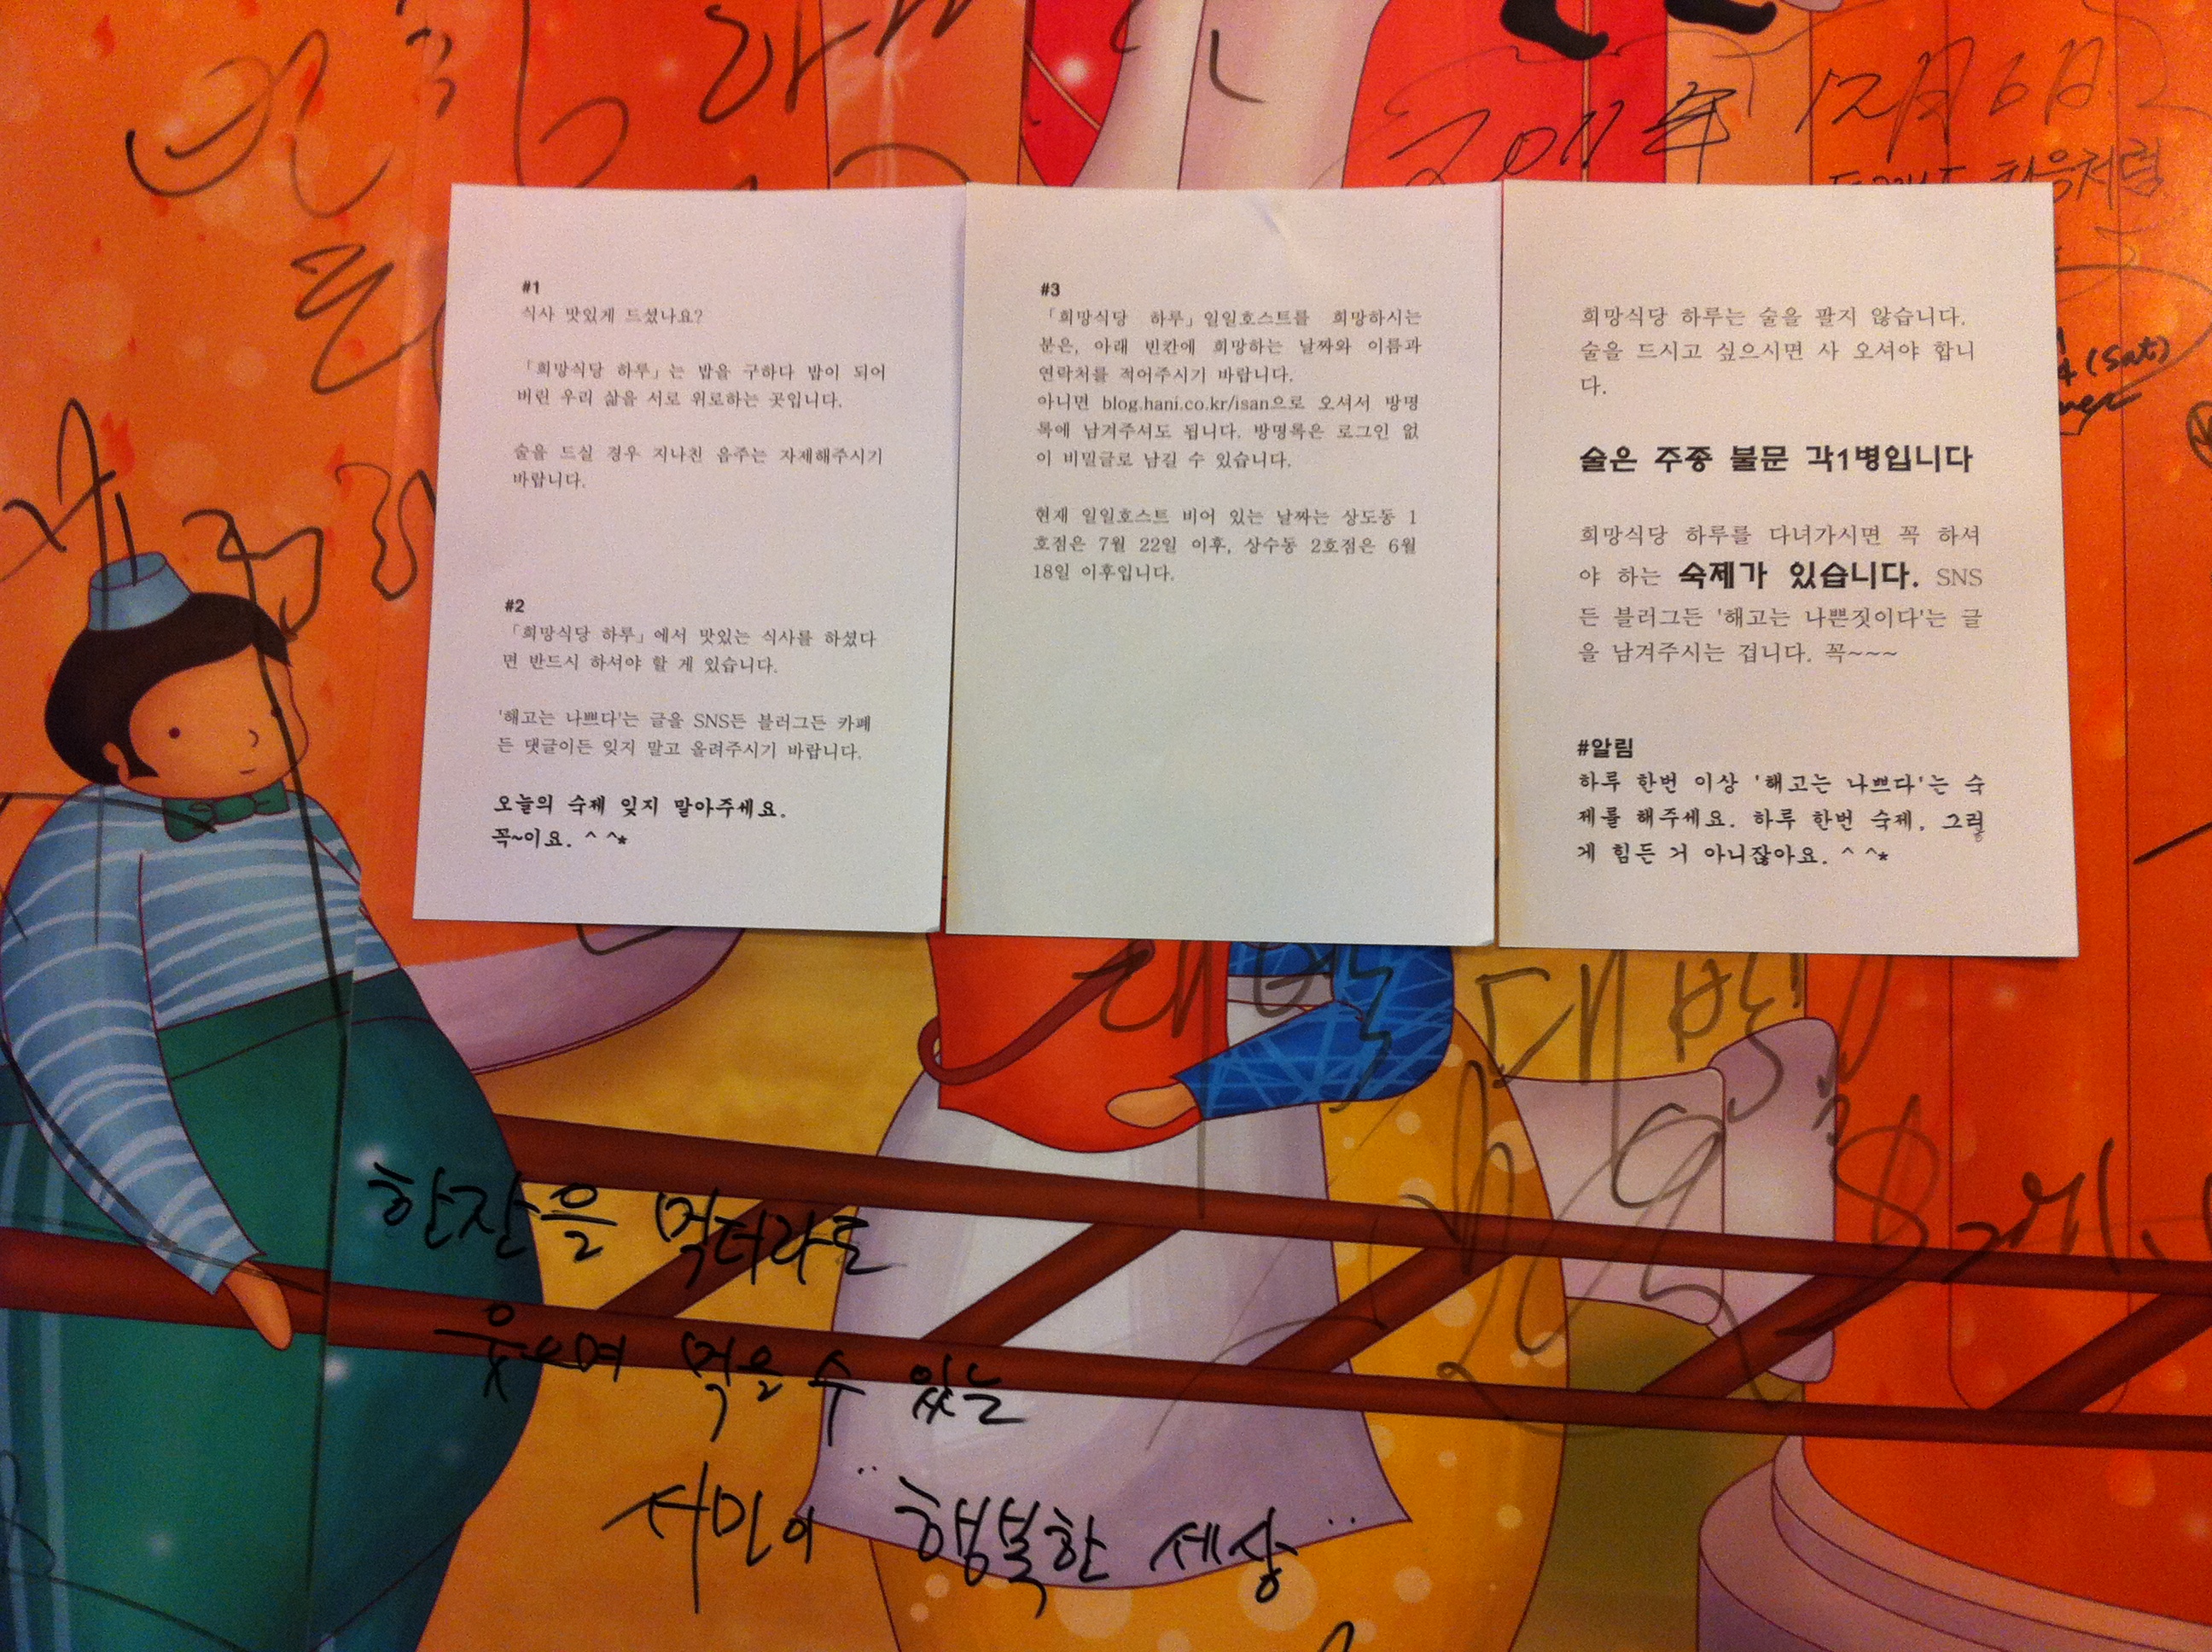 2011年 12月 6日
처음처럼
#1
식사 맛있게 드셨나요?
「희망식당 하루」는 밥을 구하다 밥이 되어
버린 우리 삶을 서로 위로하는 곳입니다.
술을 드실 경우 지나친 음주는 자제해주시기
바랍니다.
#2
「희망식당 하루」에서 맛있는 식사를 하셨다
면 반드시 하셔야 할 게 있습니다.
'해고는 나쁘다'는 글을 SNS든 블러그든 카페
든 댓글이든 잊지 말고 올려주시기 바랍니다.
오늘의 숙제 잊지 말아주세요.
꼭~이요. ^ ^*
#3
「희망식당 하루」일일호스트를 희망하시는
분은, 아래 빈칸에 희망하는 날짜와 이름과
연락처를 적어주시기 바랍니다.
아니면 blog.hani.co.kr/isan으로 오셔서 방명
록에 남겨주셔도 됩니다. 방명록은 로그인 없
이 비밀글로 남길 수 있습니다.
현재 일일호스트 비어 있는 날짜는 상도동 1
호점은 7월 22일 이후, 상수동 2호점은 6월
18일 이후입니다.
희망식당 하루는 술을 팔지 않습니다.
술을 드시고 싶으시면 사 오셔야 합니
다.
술은 주종 불문 각1병입니다
희망식당 하루를 다녀가시면 꼭 하셔
야 하는 숙제가 있습니다. SNS
든 블러그든 '해고는 나쁜짓이다'는 글
을 남겨주시는 겁니다. 꼭~~~
#알림
하루 한번 이상 '해고는 나쁘다'는 숙
제를 해주세요. 하루 한번 숙제, 그렇
게 힘든 거 아니잖아요. ^ ^*
(Sat)
대박!
한잔을 먹더라도
웃으며 먹을 수 있는
서민이 "행복한 세상"